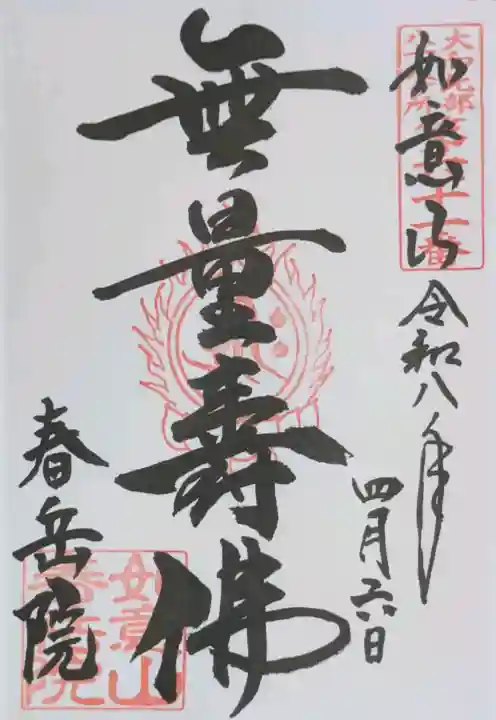 如意山
令和八年
四月六日
無量壽佛
春岳院
大和北部
如意山
春岳院